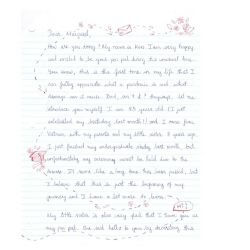 Dear Margaret,
How are you today? My name is Kim. I am very happy
and excited to be your pen pal during this unusual time.
You know, this is the first time in my life that I
can fully appreciate what a pandemic is and what
damage can it cause. But, isn't it? Anyway, let me
introduce yourself. I am 23 years old (I just
celebrated my birthday last month!) and I come from
Vietnam with my parents and my little sister. 2 years ago
I just finished my undergraduate study last month, but
unfortunately my ceremony won't be held due to the
It seems like a long time has been passed, but
I believe that this is just the beginning of my
journey and I have a lot more to learn.
My little sister is also very glad that I have you as
my pen pal. She said hello to you by decorating this